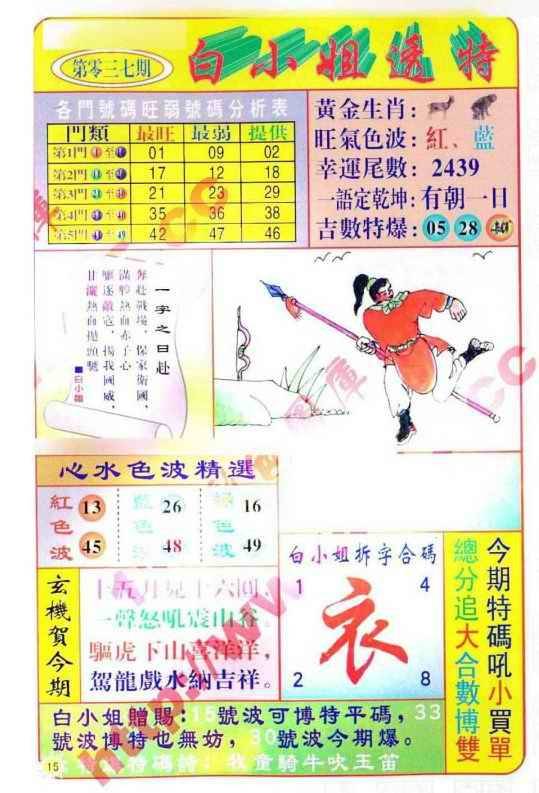 第零三七期
白小姐透特
各門號碼旺弱號碼分析表
門類 最旺 最弱 提供
第1門 至 01 09 02
第2門 至 17 12 18
第3門 至 21 23 29
第4門 至 35 36 38
第5門 至 42 47 46
黃金生肖:
旺氣色波:紅、藍
幸運尾數:2439
一語定乾坤:有朝一日
吉數特爆:05 28 40
一字之曰赴
奔赴戰場,保家衛國,
滿腔熱血赤子心,
驅逐敵寇,揚我國威,
甘灑熱血拋頭顱
■白小姐
心水色波精選
紅色波 13 45
藍色波 26 48
綠色波 16 49
玄機賀今期
十五月兒十六圓,
一聲怒吼震山谷。
驅虎下山喜洋洋,
駕龍戲水納吉祥。
白小姐拆字合碼
1 4
衣
2 8
今期特碼吼小買單
總分追大合數博雙
白小姐贈賜:15號波可博特平碼,33
號波博特也無妨,30號波今期爆。
特碼詩:牧童騎牛吹玉笛
15